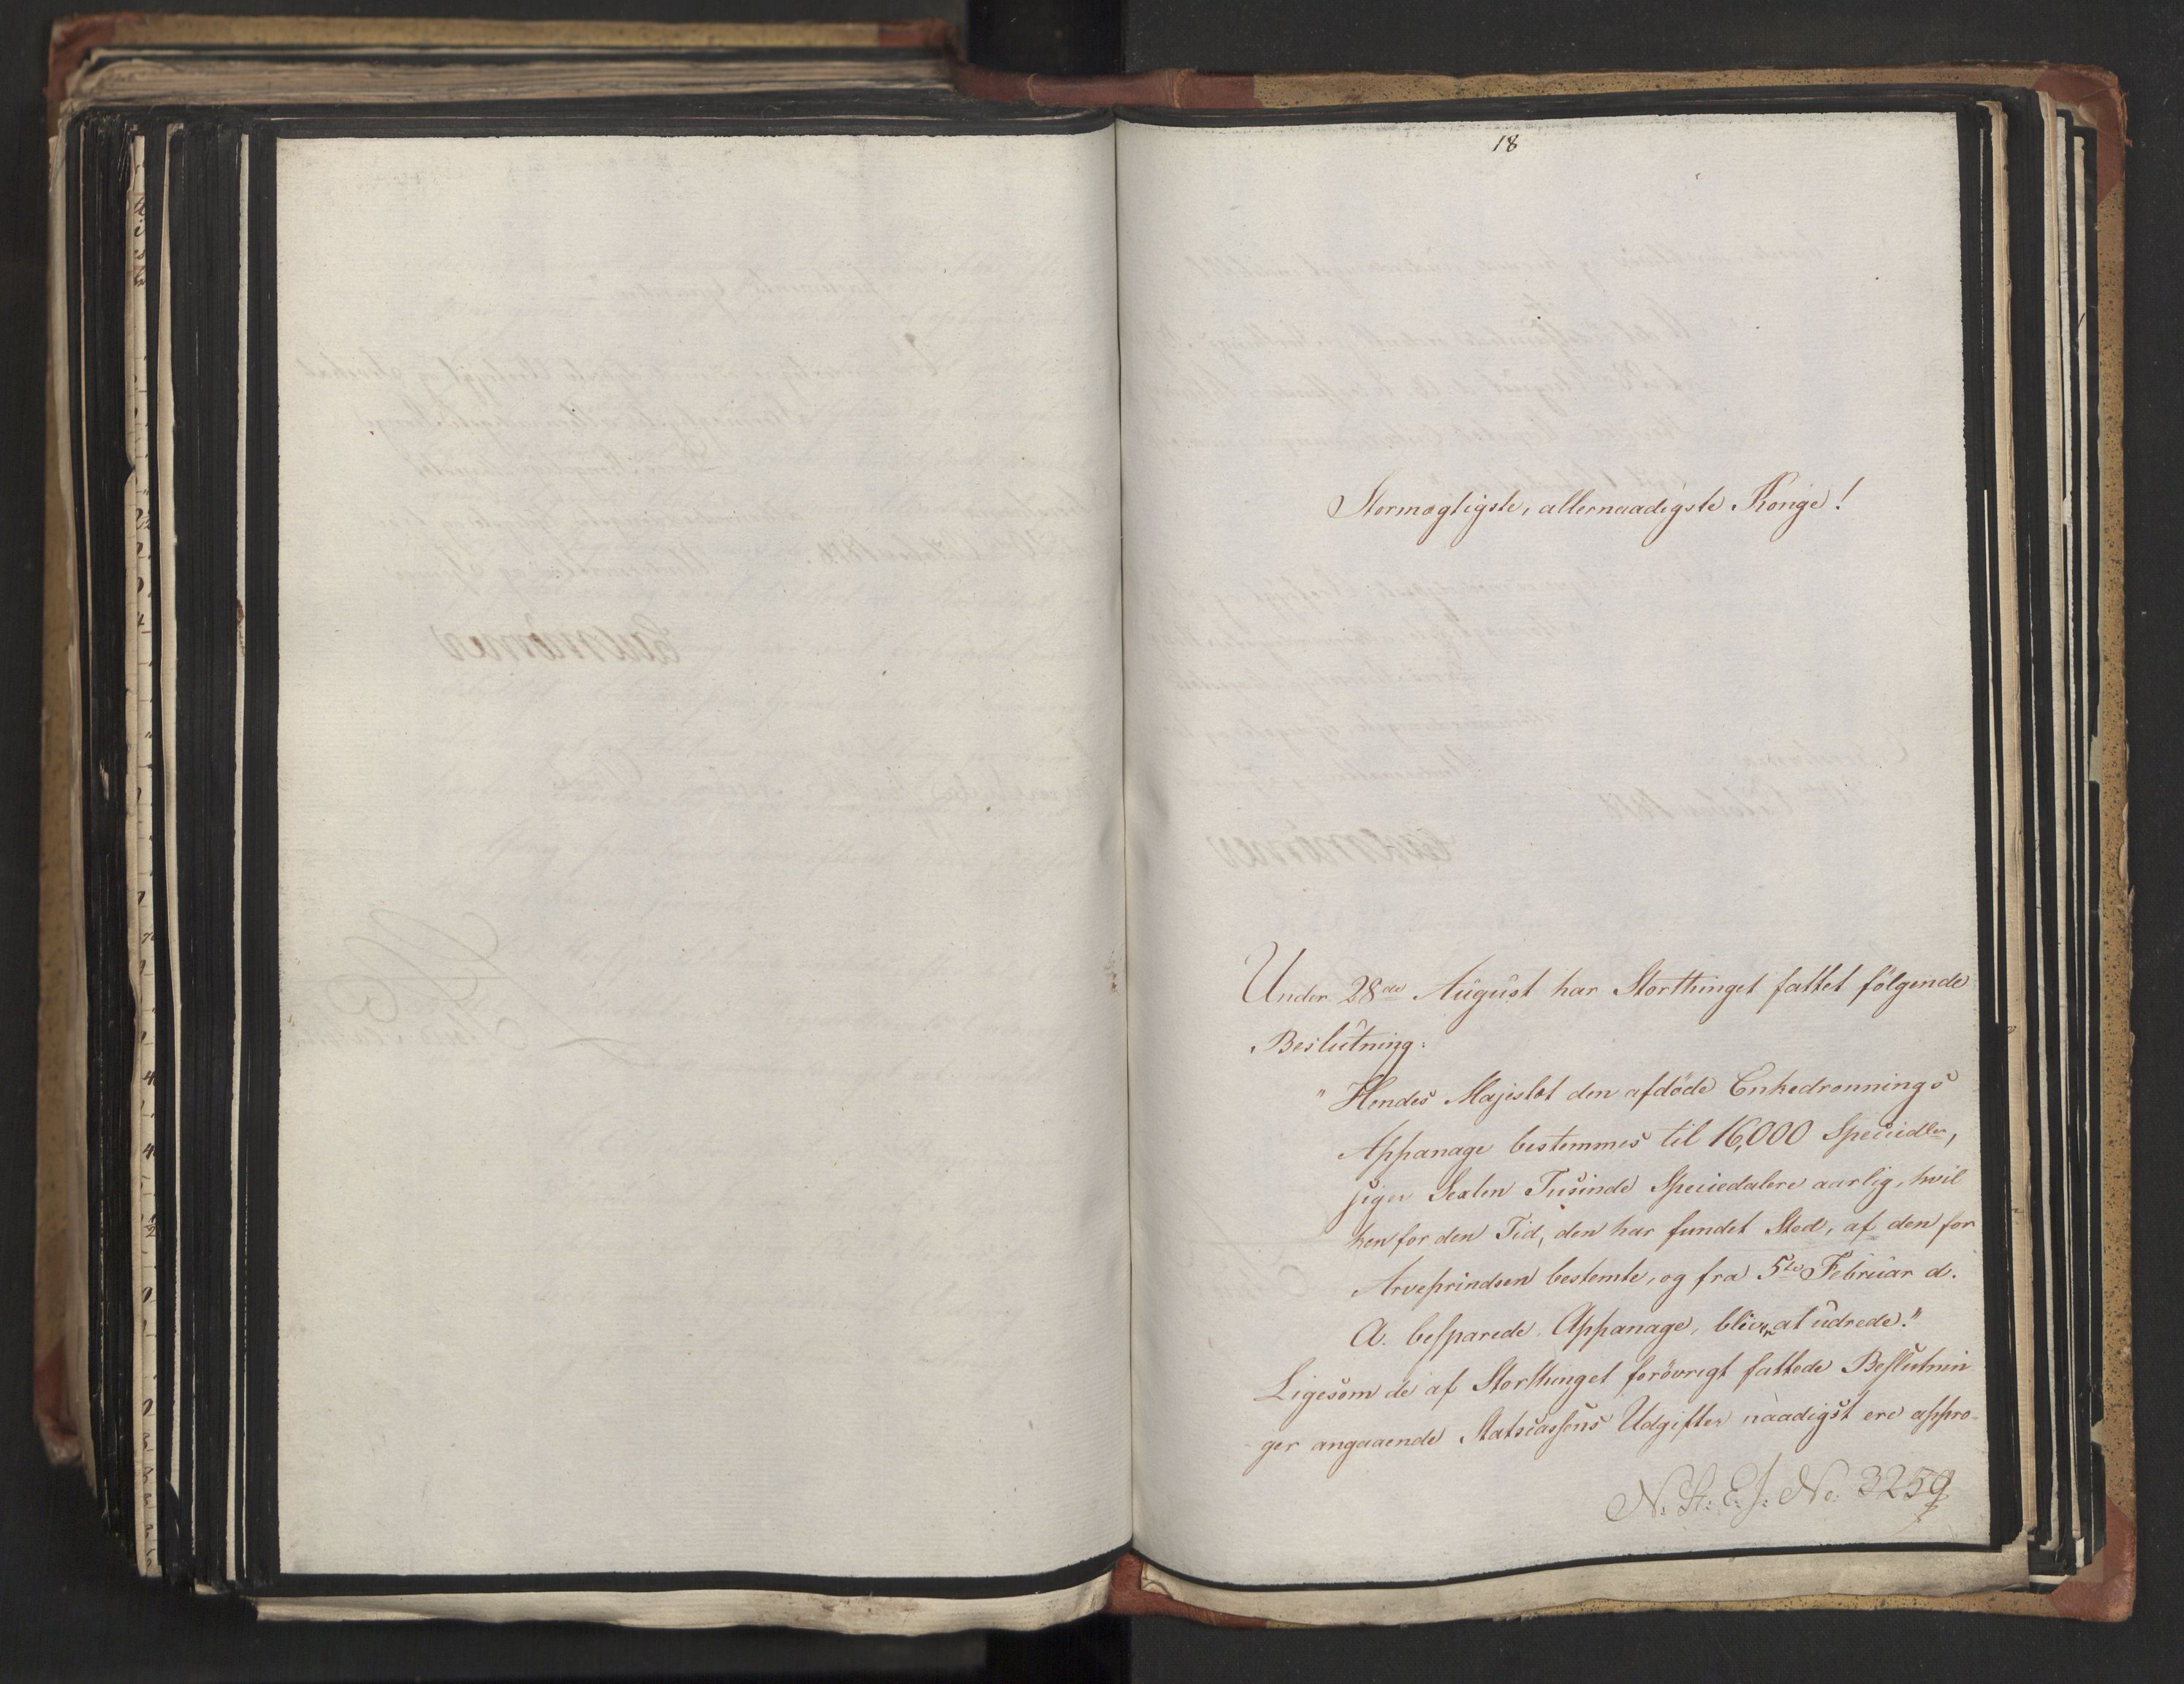 18
Stormægtigste, allernaadigste Konge!
Under 28de August har Storthinget fattet følgende
Beslutning:
"Hendes Majestæt den afdøde Enkedronnings
Appanage bestemmes til 16,000 Speciedlr,
siger Sexten Tusinde Speciedalere aarlig, hvil
ken for den Tid, den har fundet Sted, af den for
Arveprindsen bestemte, og fra 5te Februar d.
A. besparede Appanage, bliver at udrede."
Ligesom de af Storthinget forøvrigt fattede Beslutnin
ger angaaende Statscassens Udgifter naadigst ere appro-
N: St: E: J: No: 3259